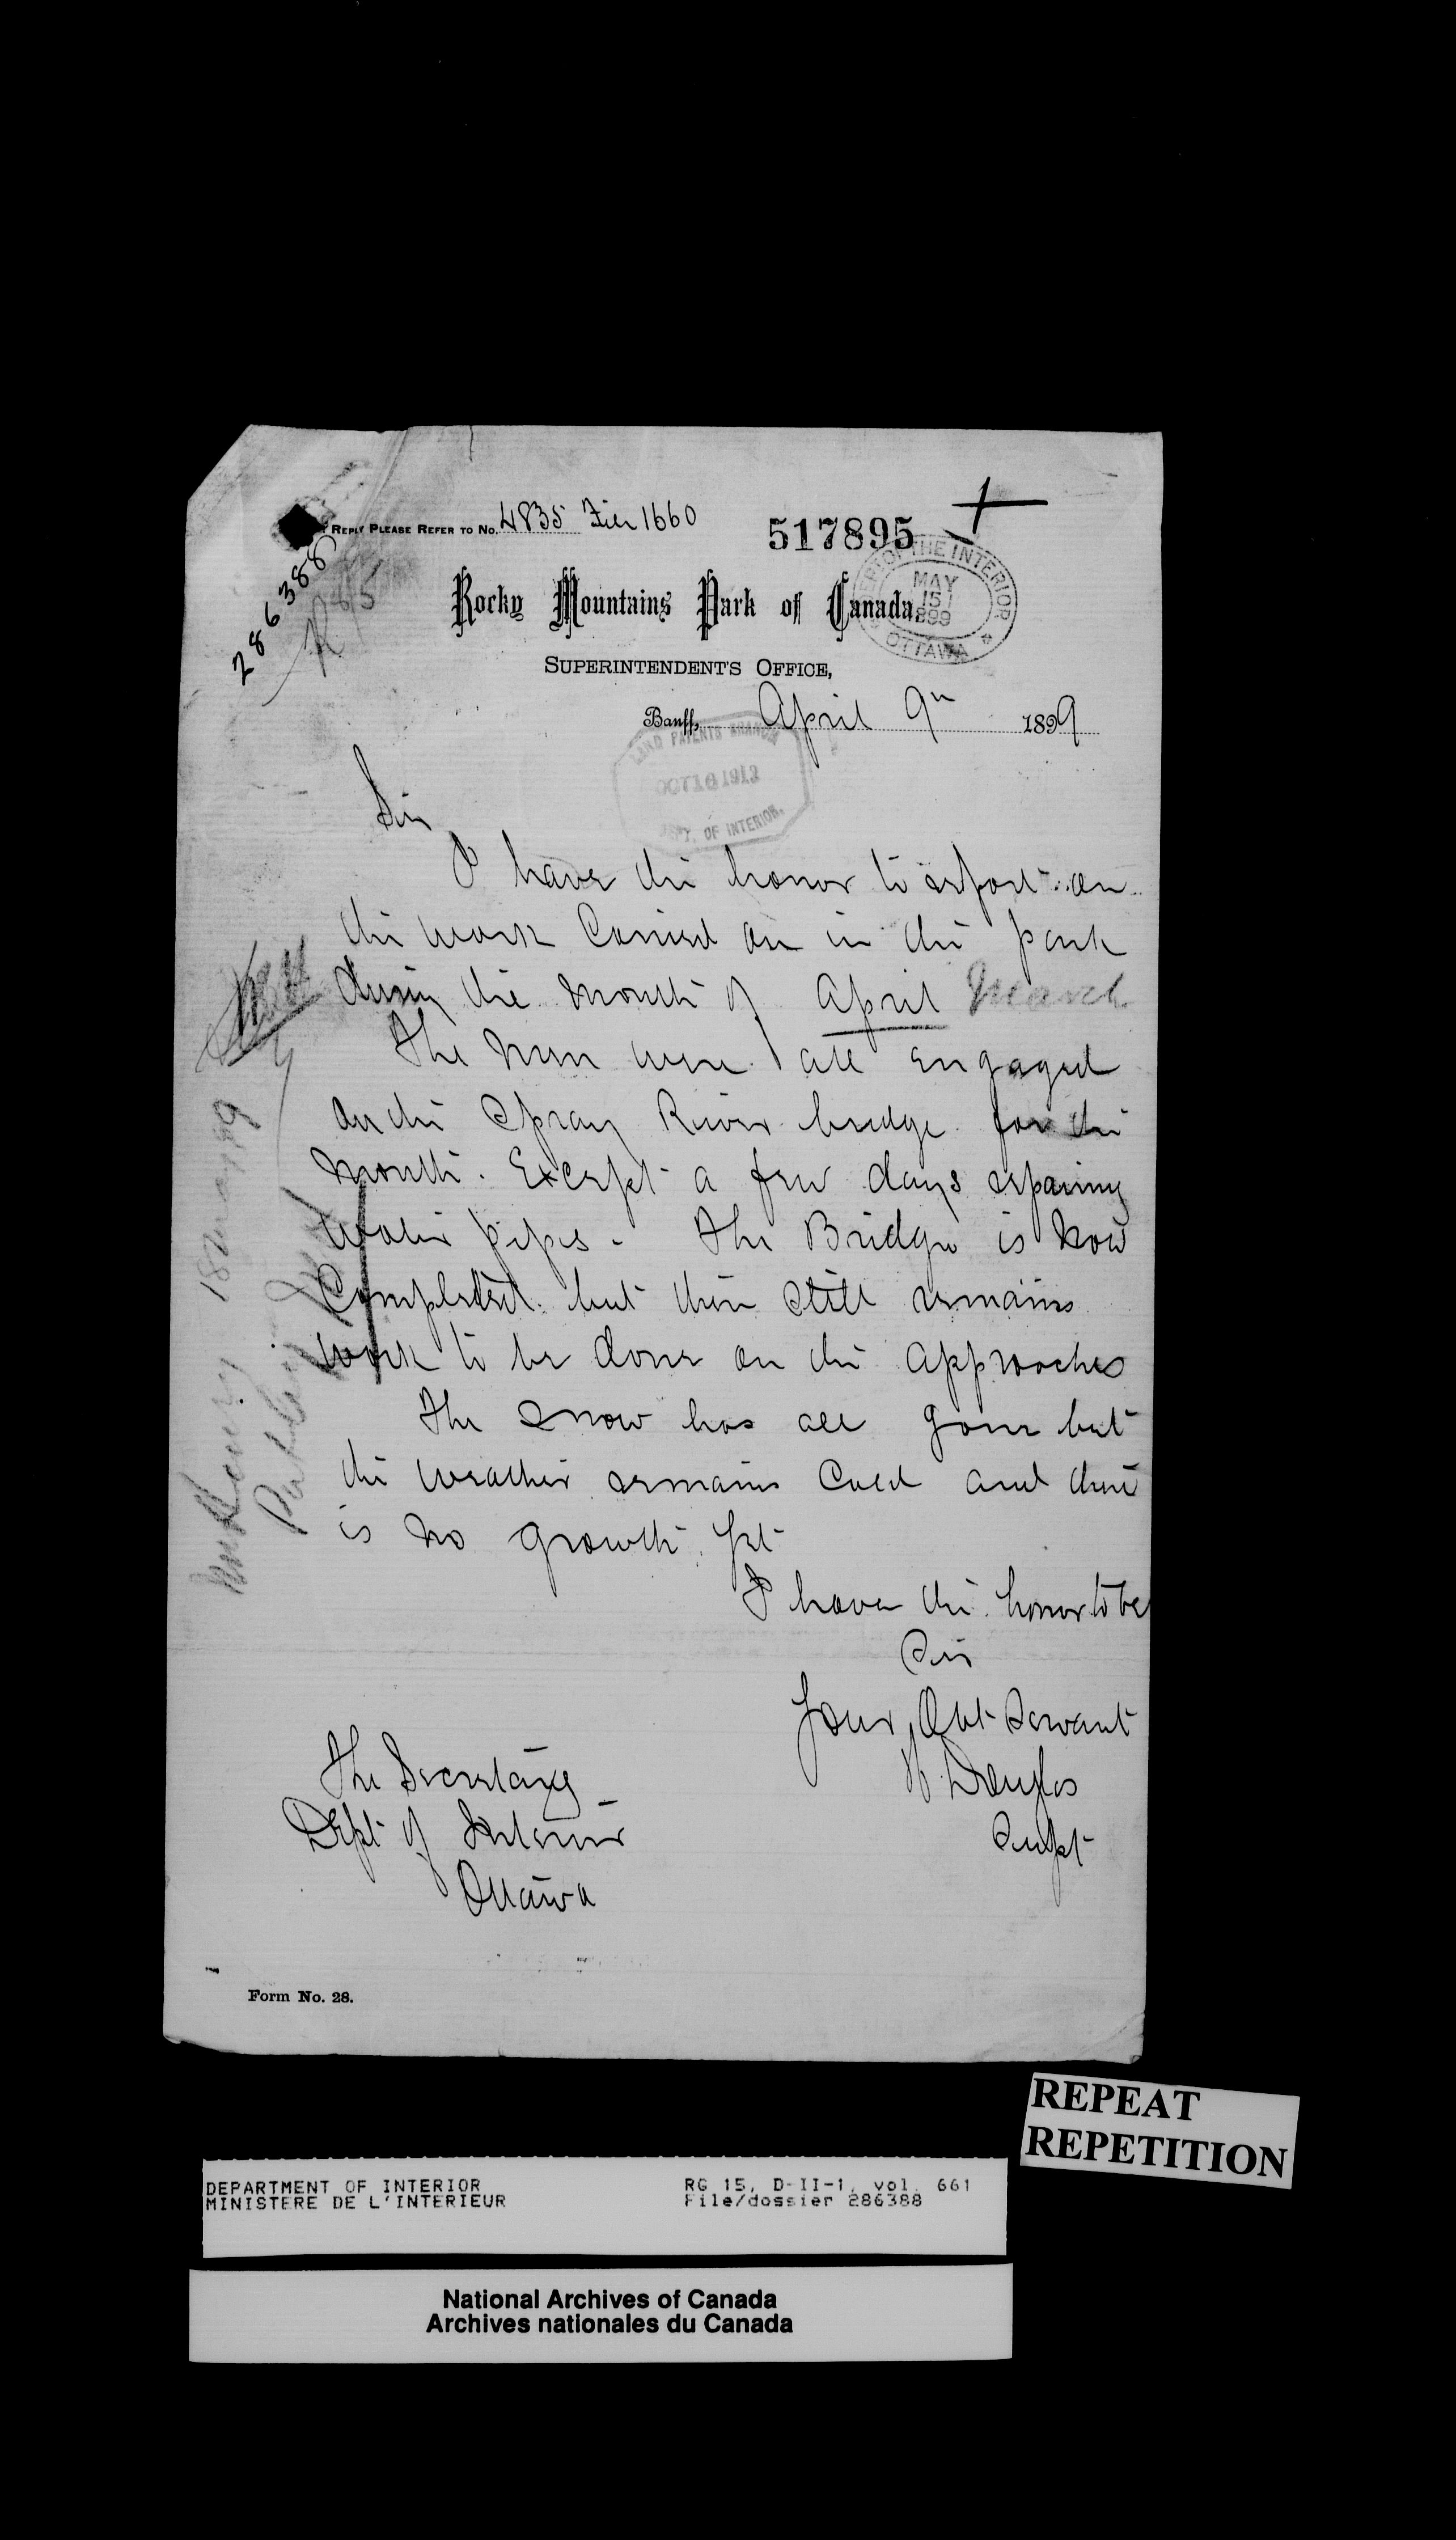 REPLY PLEASE REFER TO No. 4835 File 1660
517895
286388
DEPT OF THE INTERIOR
MAY
15
1899
OTTAWA
Rocky Mountains Park of Canada.
SUPERINTENDENT'S OFFICE,
Banff, April 9th 1899
LAND PATENTS BRANCH
OCT 16 1913
DEPT. OF INTERIOR.
Sir
I have the honor to report on
the work Carried on in the park
during the month of April March
The men were all engaged
on the Spray River bridge for the
month. Except a few days repairing
water pipes. The Bridge is now
Completed but there still remains
work to be done on the approaches
The snow has all gone but
the weather remains Cold and there
is no growth yet
I have the honor to be
Sir
Your Obt Servant
H Douglas
Supt
The Secretary
Dept of Interior
Ottawa
Mr Henry 18 May 99
Form No. 28.
REPEAT
REPETITION
DEPARTMENT OF INTERIOR RG 15, D-II-1, vol. 661
MINISTERE DE L'INTERIEUR File/dossier 286388
National Archives of Canada
Archives nationales du Canada